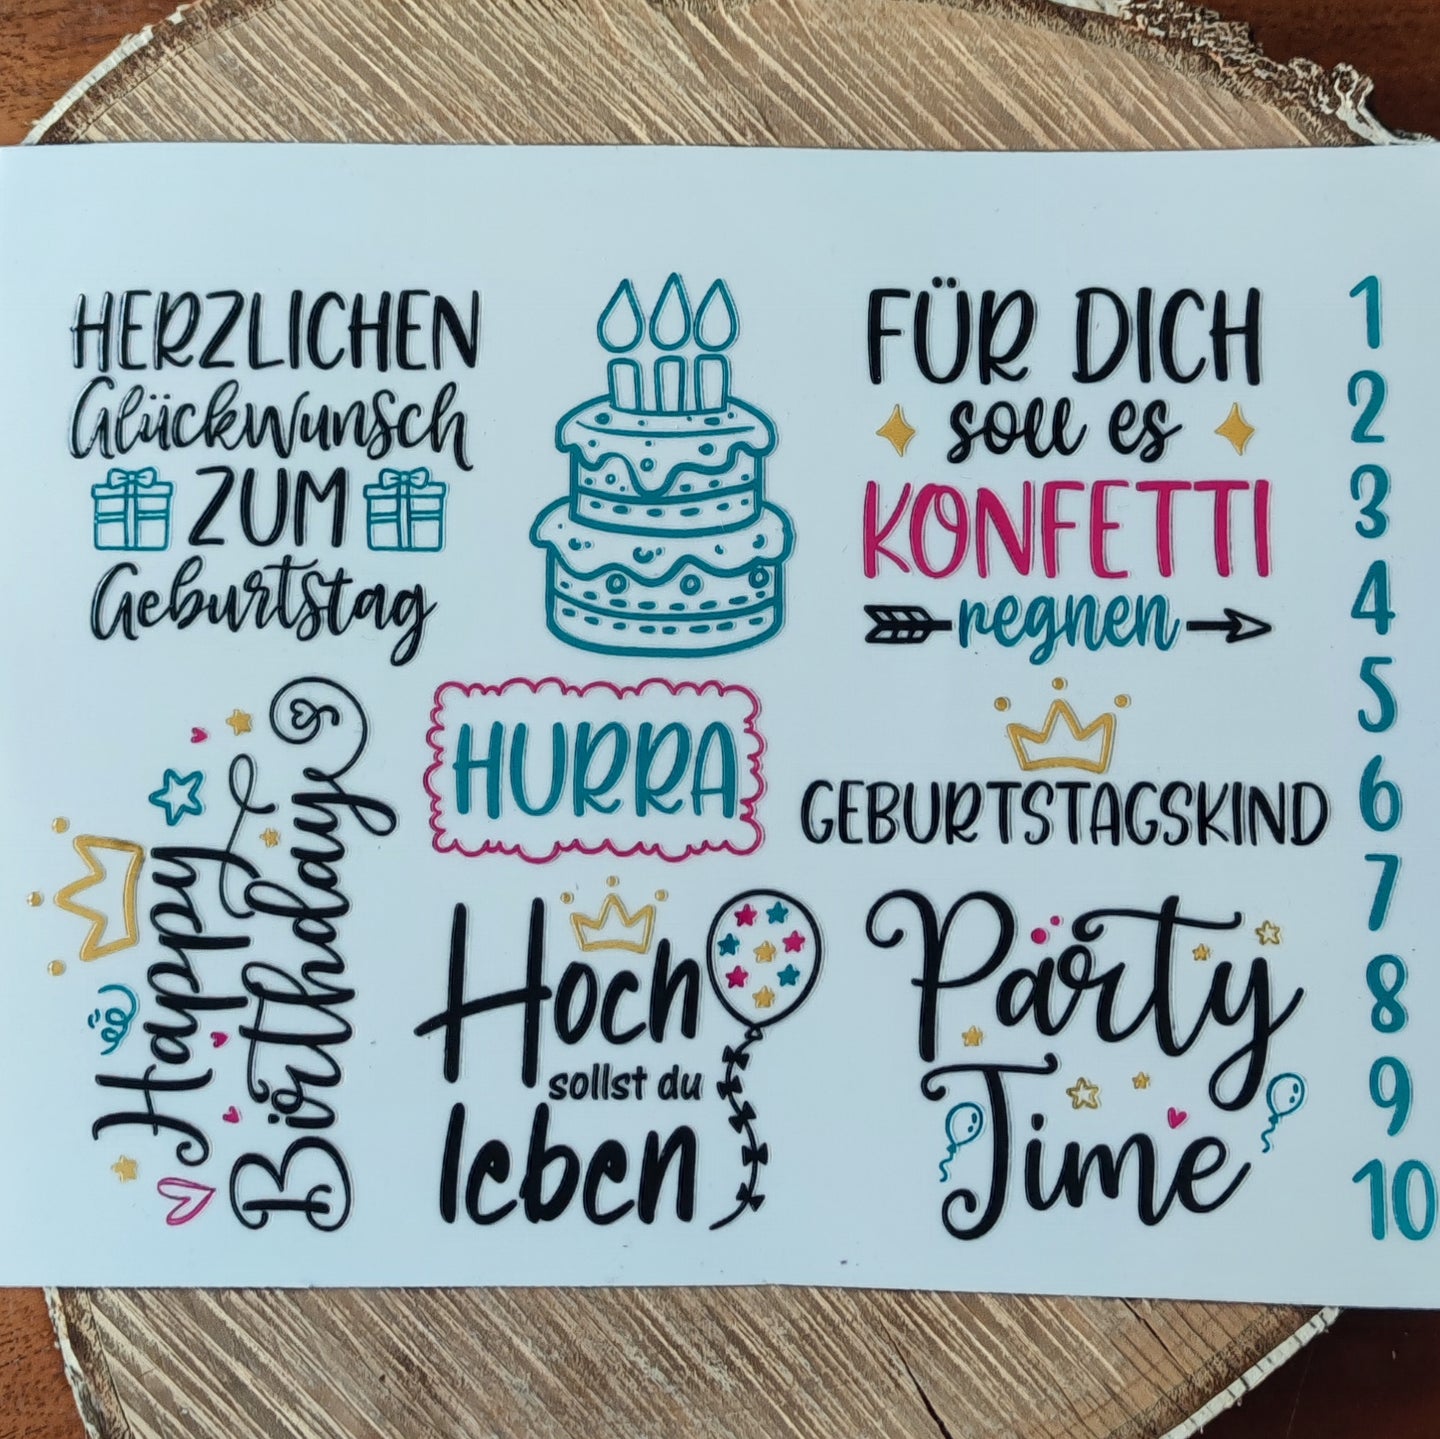 HERZLICHEN
Glückwunsch
ZUM
Geburtstag
FÜR DICH
soll es
KONFETTI
regnen
Happy
Birthday
HURRA
GEBURTSTAGSKIND
Hoch
sollst du
leben
Party
Time
1
2
3
4
5
6
7
8
9
10